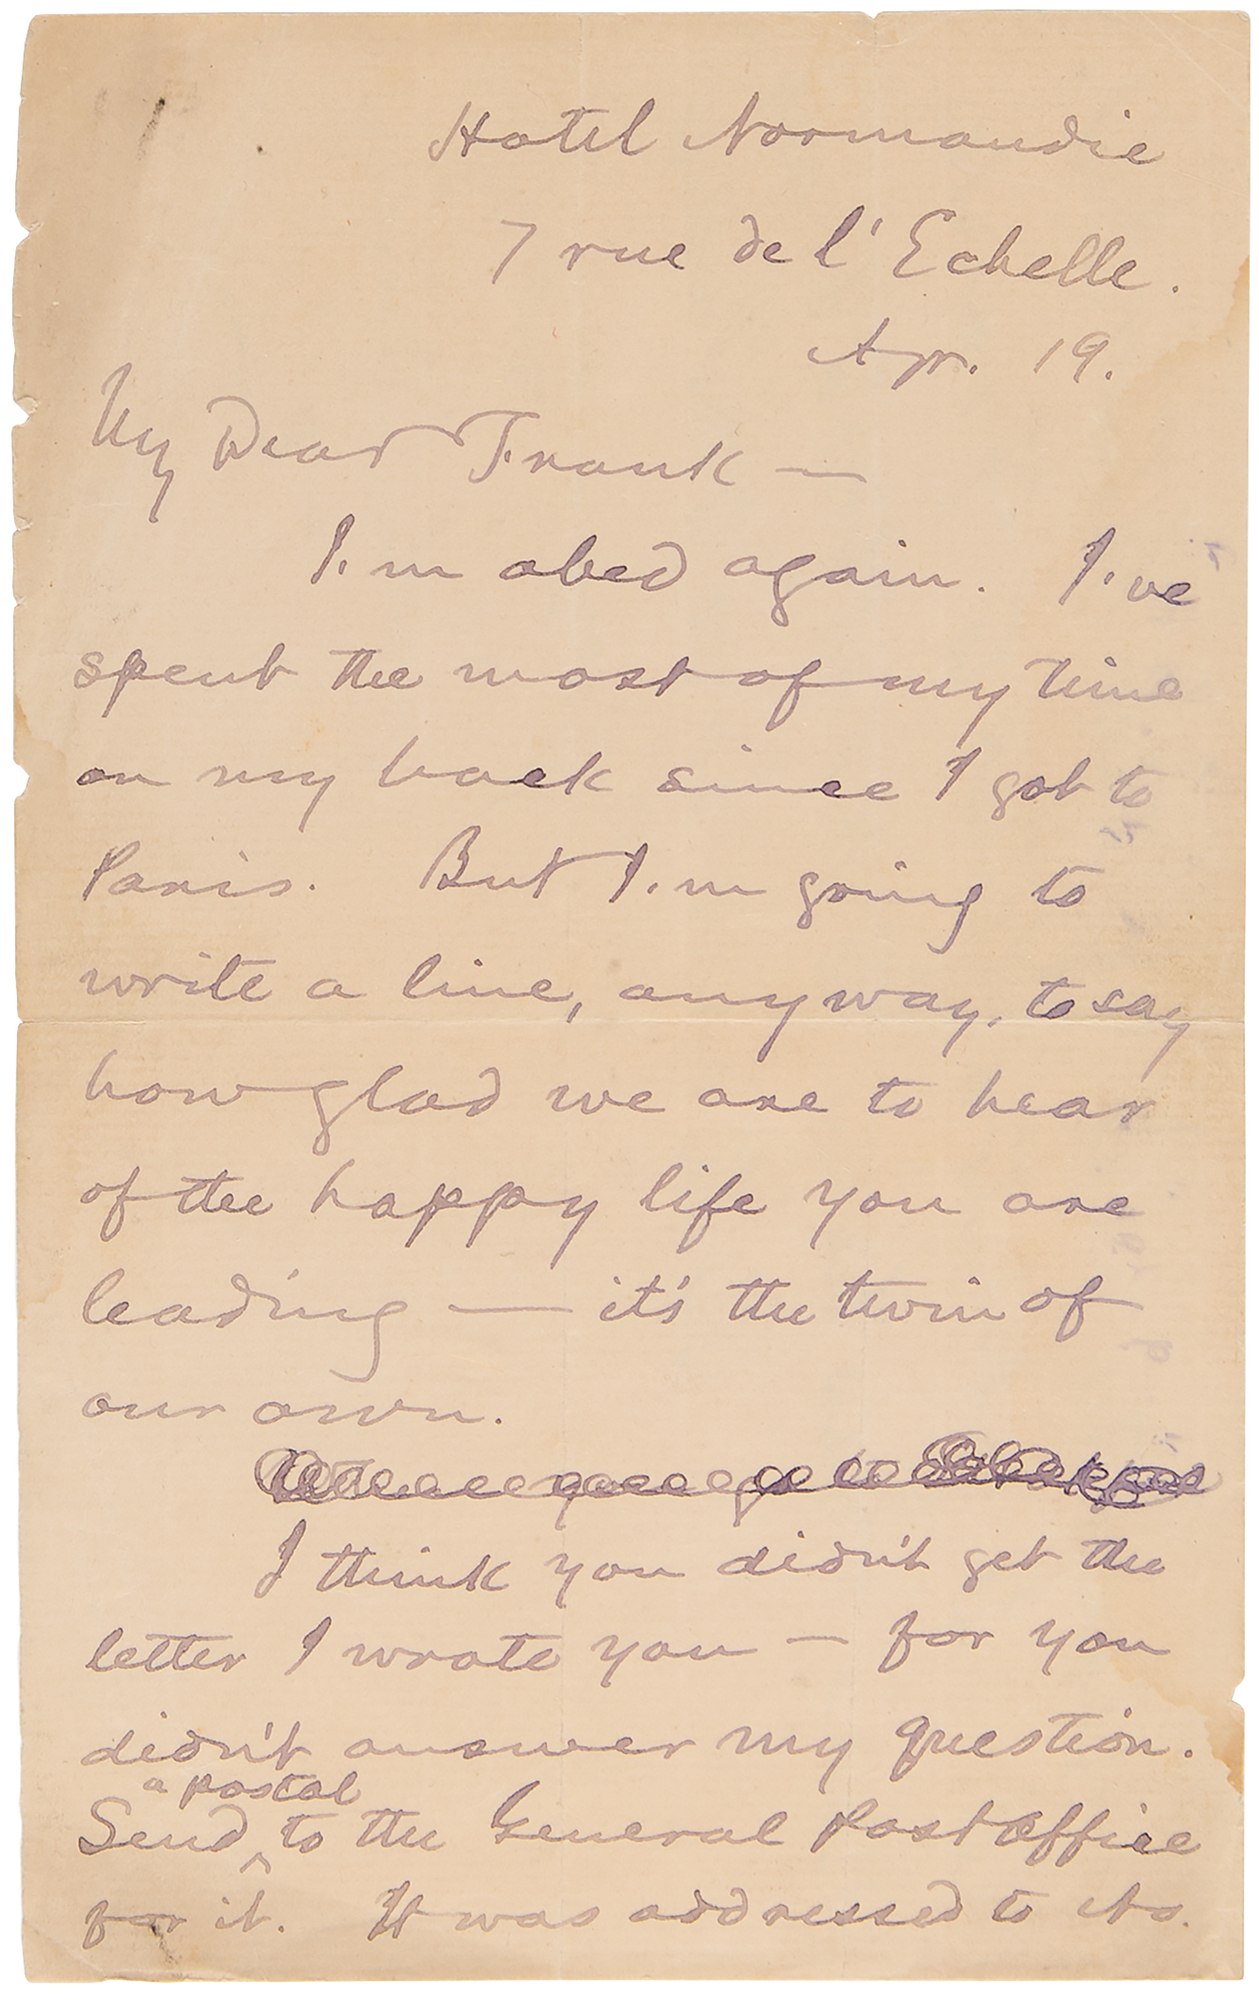 Hotel Normandie
7 rue de l'Echelle.
Apr. 19.
My Dear Frank —
I'm abed again. I've
spent the most of my time
on my back since I got to
Paris. But I'm going to
write a line, anyway, to say
how glad we are to hear
of the happy life you are
leading — it's the twin of
our own.
I think you didn't get the
letter I wrote you — for you
didn't answer my question.
a postal
Send ^ to the General Post Office
for it. It was addressed to No.